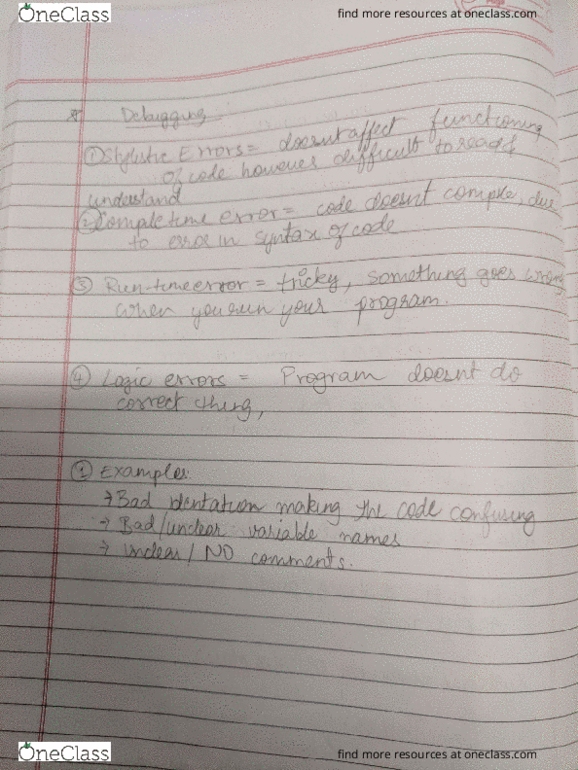 OneClass
find more resources at oneclass.com
Debugging
① Stylistic Errors = doesnt affect functioning
of code however difficult to read &
understand
② Compile time error = code doesnt compile, due
to error in syntax of code
③ Run-time error = tricky, something goes wrong
when you run your program.
④ Logic errors = Program doesnt do
correct thing,
① Examples:
→ Bad identation making the code confusing
→ Bad/unclear variable names
→ unclear / NO comments.
OneClass
find more resources at oneclass.com